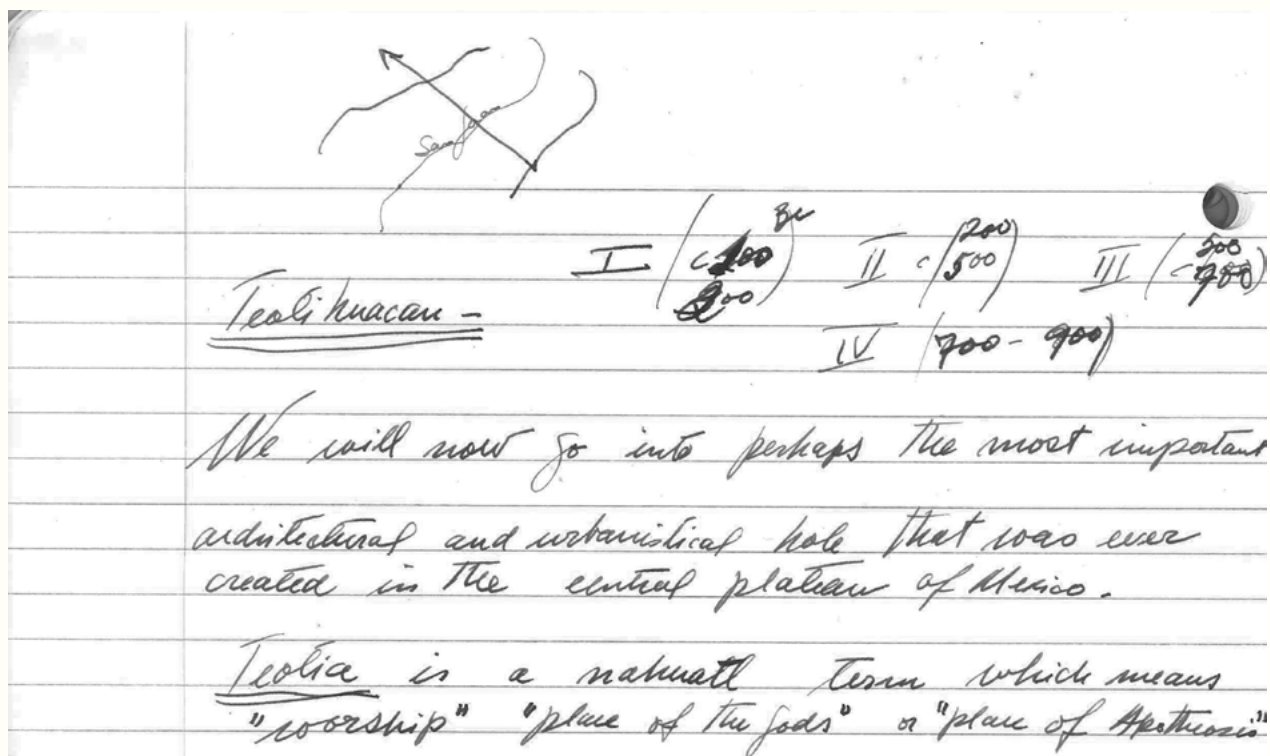 San Juan
I (c 100 BC
200)
II c (200
500)
III (c 500
700)
Teotihuacan -
IV (700 - 900)
We will now go into perhaps the most important
architectural and urbanistical hole that was ever
created in the central plateau of Mexico.
Teotia is a nahuatl term which means
"worship" "place of the gods" or "place of Apotheosis"